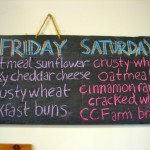 FRIDAY SATURDAY
tmeal sunflower crusty wh
ky cheddar cheese oatmea
usty wheat cinnamon rai
kfast buns cracked w
C.C. Farm br